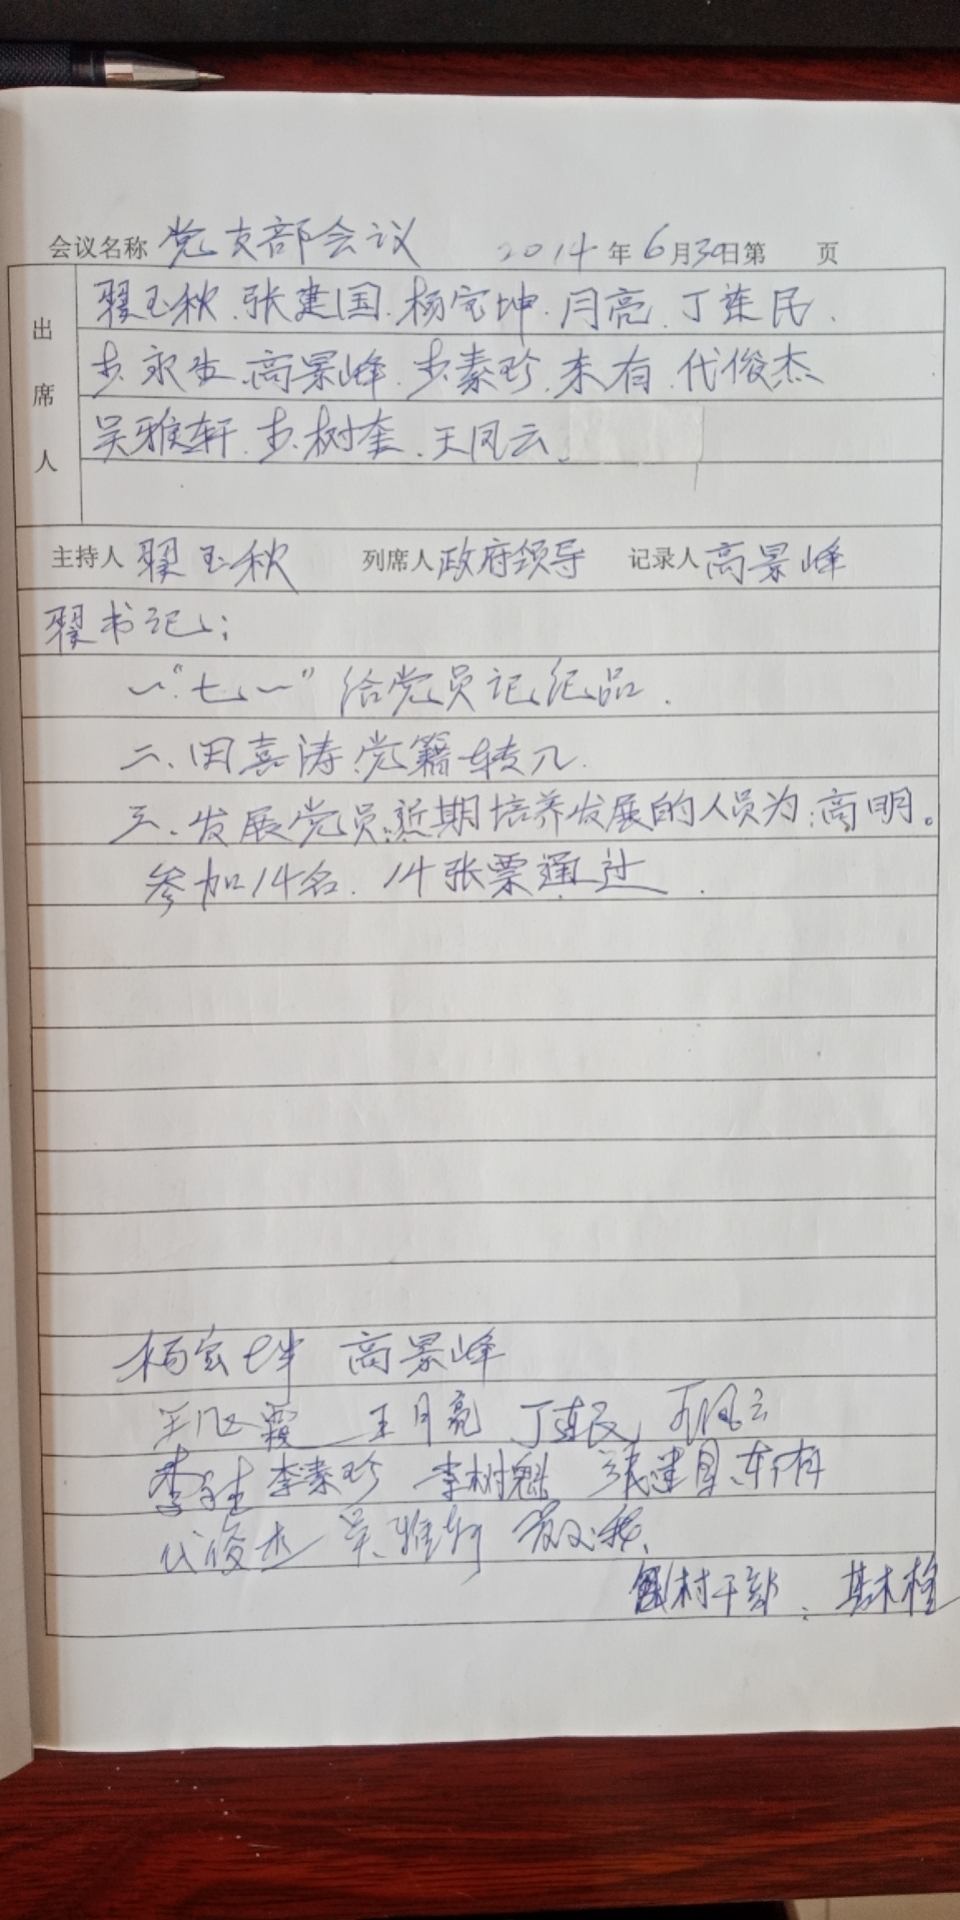 会议名称 党支部会议 2014年6月30日第 页
出席人
翟玉秋.张建国.杨宝坤.月亮.丁连民.
步永生.高景峰.步素珍.东有.代俊杰
吴雅轩.步树奎.王凤云.
主持人 翟玉秋 列席人 政府领导 记录人 高景峰
翟书记:
一."七一"给党员记纪品.
二、田喜涛党籍转入.
三、发展党员.近期培养发展的人员为:高明。
参加14名.14张票通过.
杨宝坤 高景峰
王月亮 丁连民 王凤云
李素珍 李树魁 张建国 东有
代俊杰 吴雅轩
村干部: